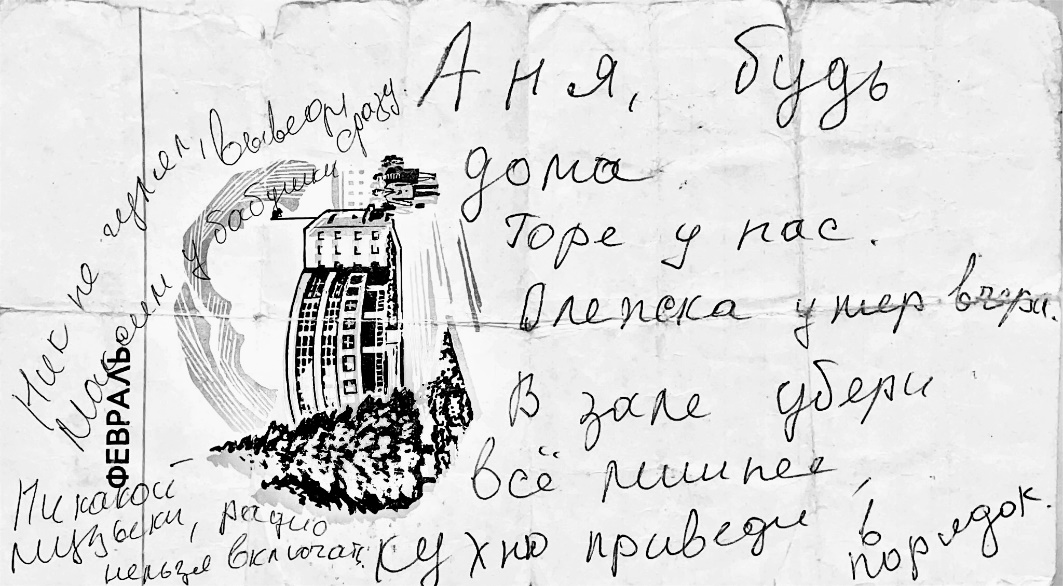 Аня, будь
дома
Горе у нас.
Олежка умер вчера.
В зале убери
всё лишнее,
кухню приведи в
порядок.
Ник не гулял, выведи сразу.
у бабушки
ФЕВРАЛЬ
Никакой
музыки, радио
нельзя включать.